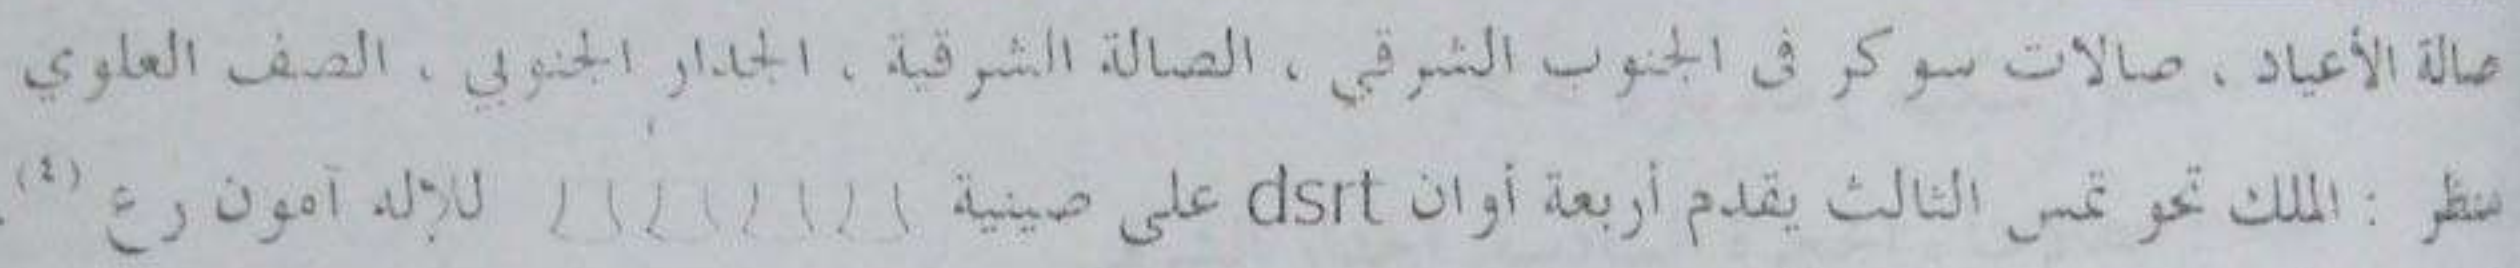 صالة الأعياد ، صالات سوكر فى الجنوب الشرقي ، الصالة الشرقية ، الجدار الجنوبي ، الصف العلوي
منظر : الملك تحوتمس الثالث يقدم أربعة أوان dsrt على صينية للإله آمون رع (٤).